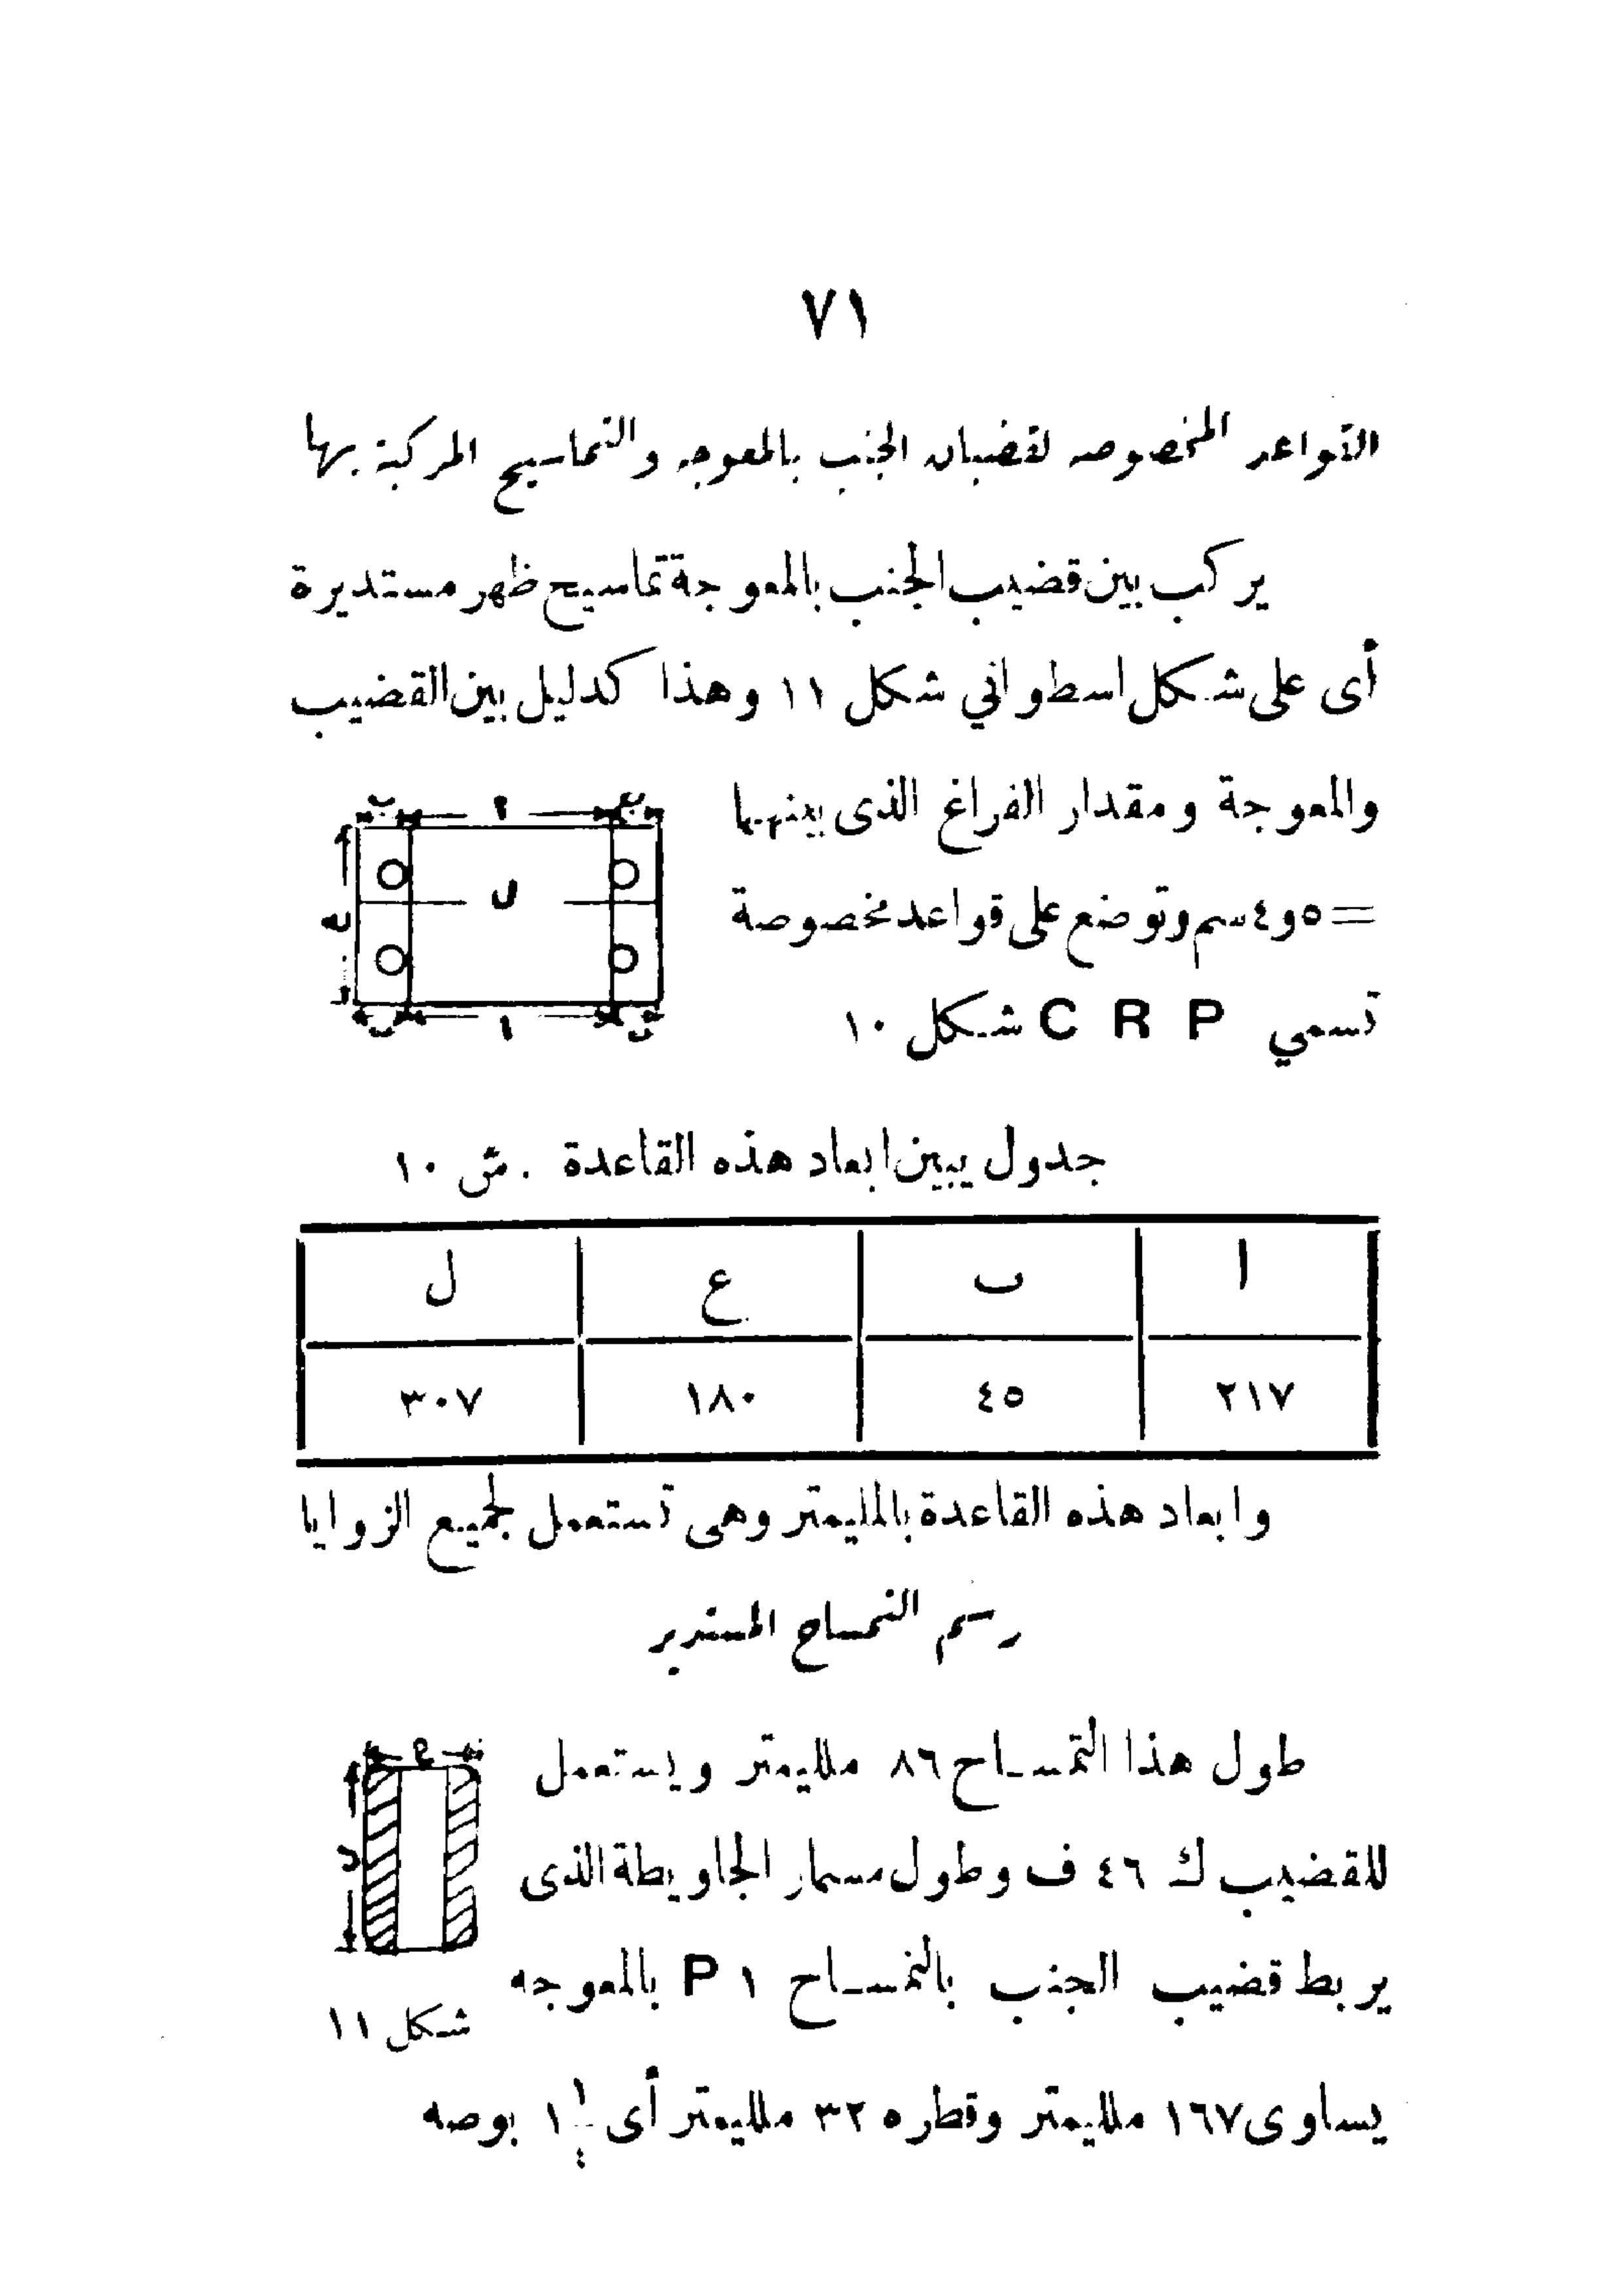 ٧١
القواعد المخصوصه لقضبان الجنب بالمعوجه والتماسيح المركبة بها
يركب بين قضيب الجنب بالمعوجة تماسيح ظهر مستديرة
أى على شكل اسطواني شكل ١١ وهذا كدليل بين القضيب
والمعوجة ومقدار الفراغ الذى بينهما
= ٥و٤ سم وتوضع على قواعد مخصوصة
تسمي C R P شكل ١٠
ل
ا
جدول يبين ابعاد هذه القاعدة . ش ١٠
ا ب ع ل
٢١٧ ٤٥ ١٨٠ ٣٠٧
وابعاد هذه القاعدة بالمليمتر وهى تستعمل لجميع الزوايا
رسم التمساح المستدير
طول هذا التمساح ٨٦ ملليمتر ويستعمل
للقضيب ك ٤٦ ف وطول مسمار الجاويطة الذى
يربط قضيب الجنب بالتمساح P ١ بالمعوجه
شكل ١١
يساوى ١٦٧ ملليمتر وقطره ٣٢ ملليمتر أى ١ ١/٤ بوصه